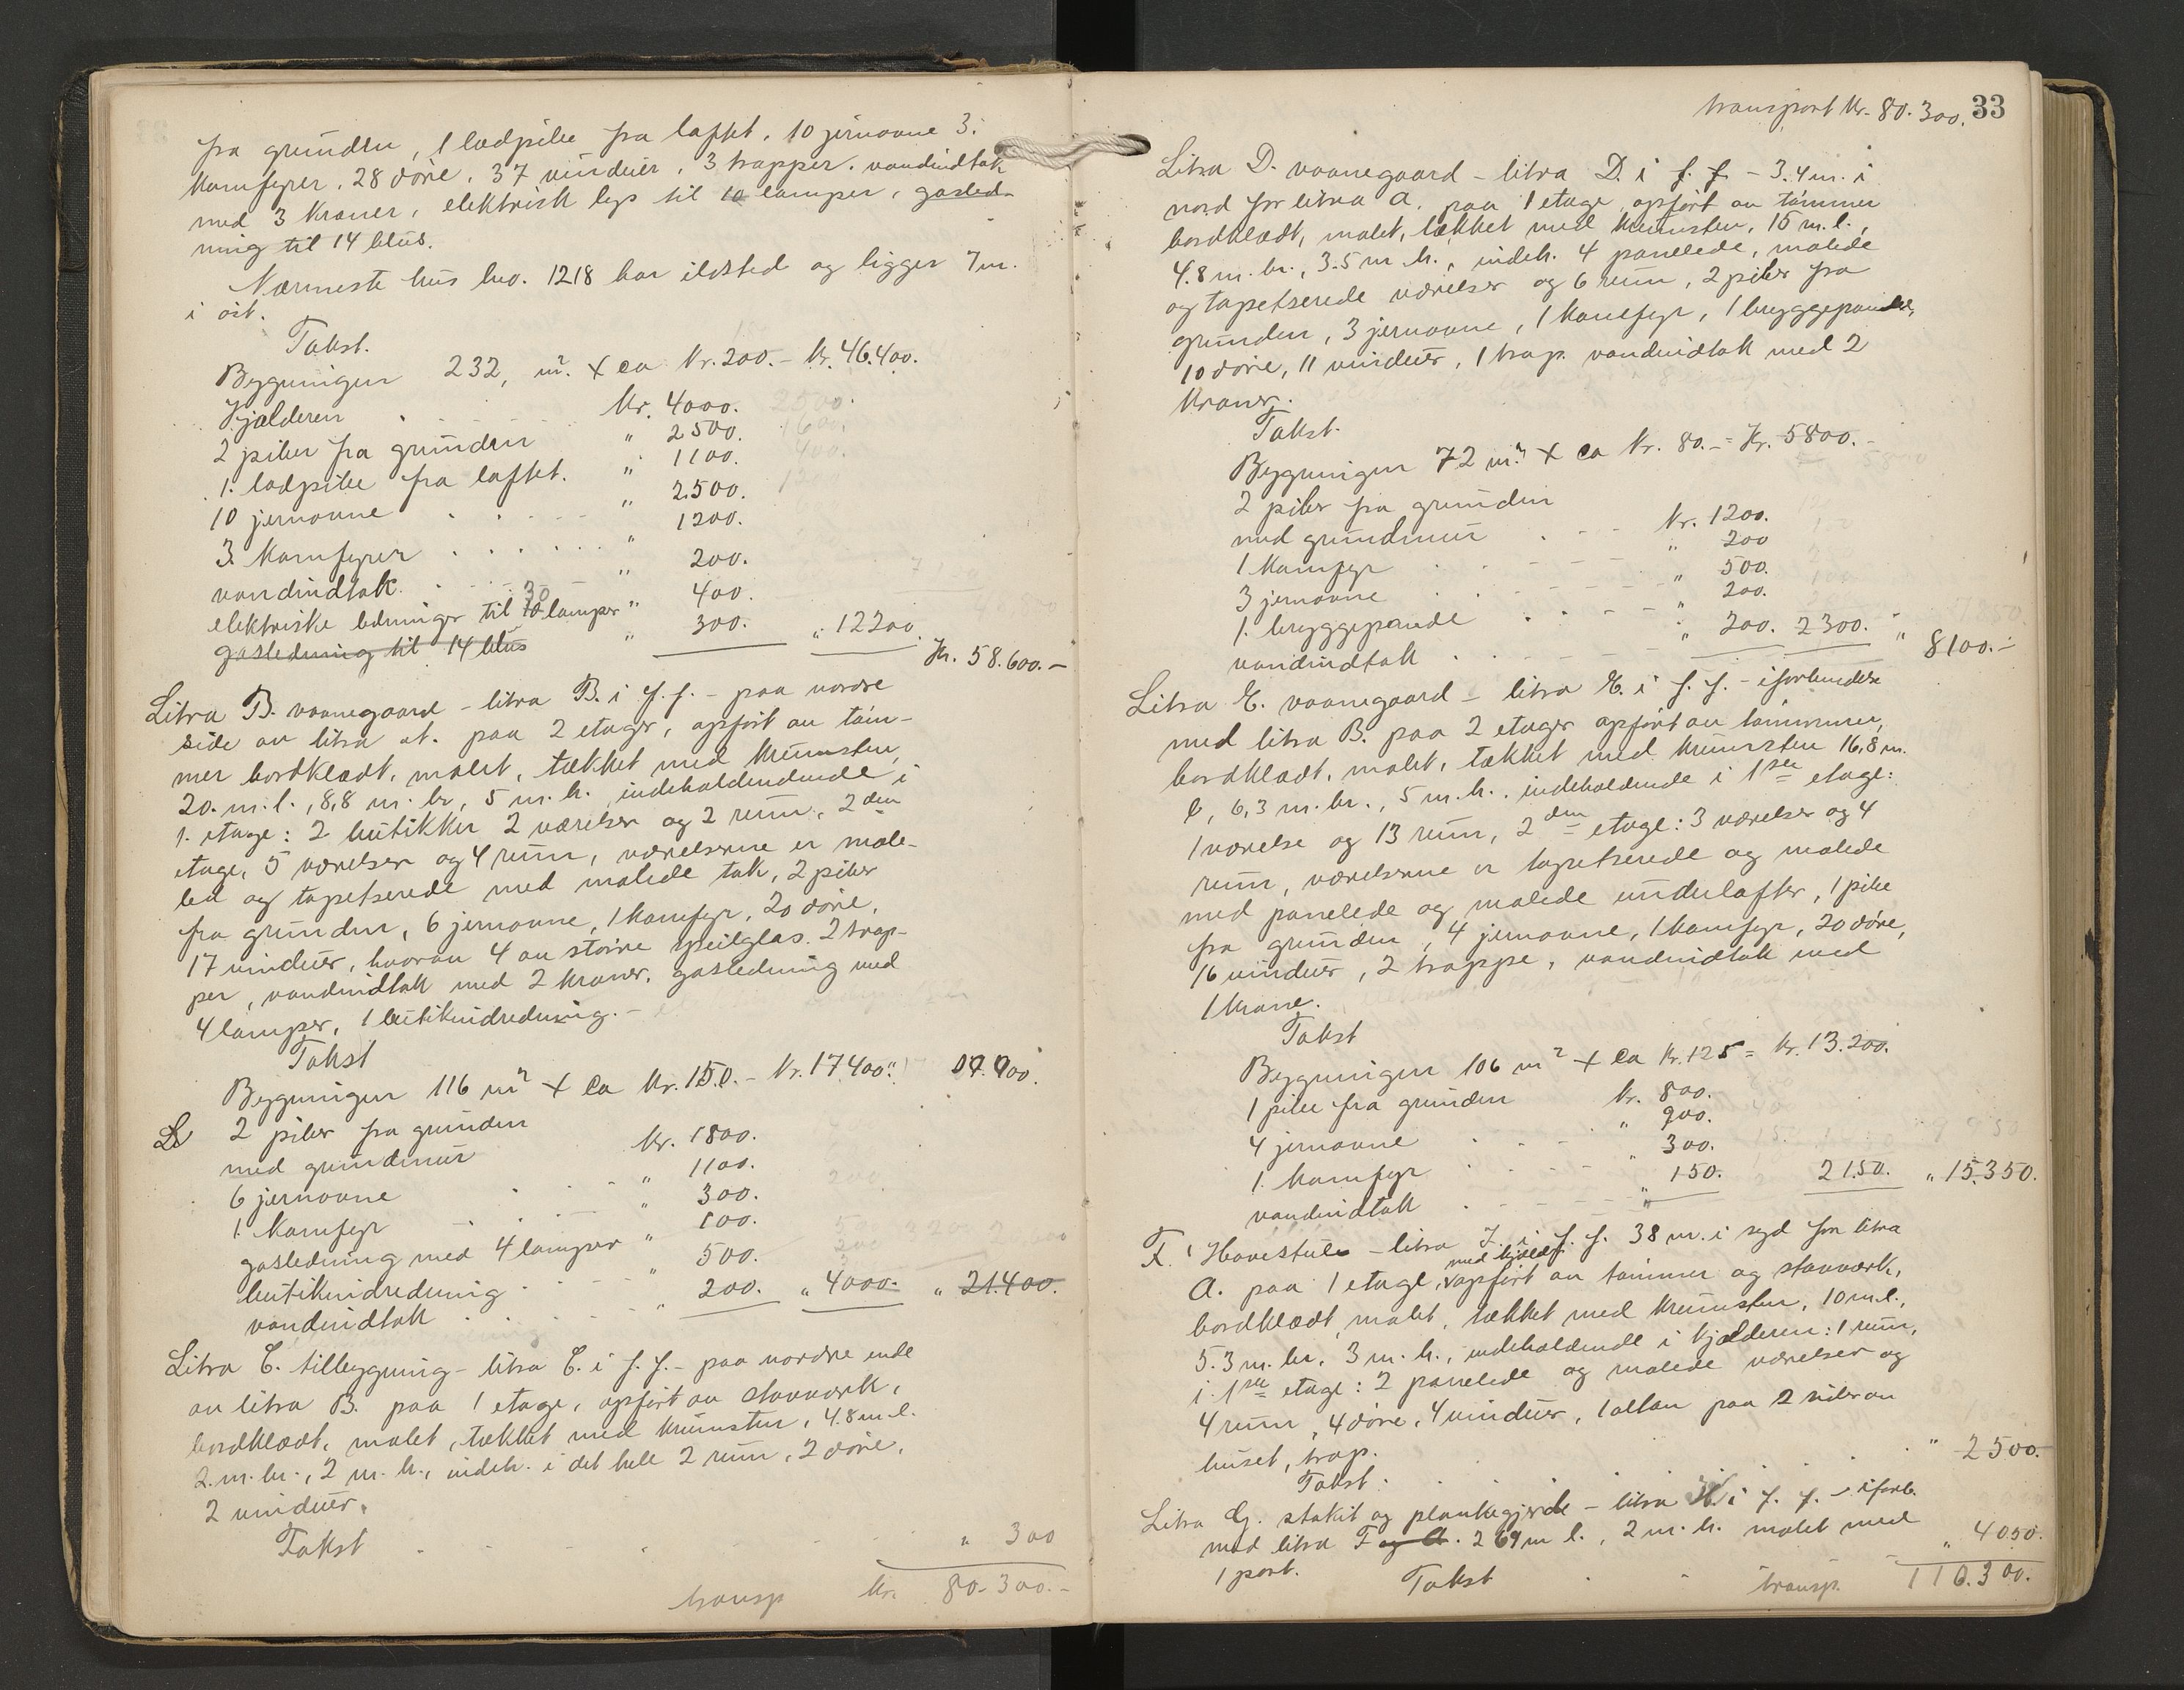 fra grunden, 1 lodpibe fra loftet, 10 jernovne 3.
komfyrer, 28 döre, 37 vinduer, 3 trapper, vandindtak
med 3 kraner, elektrisk lys til 10 lamper, gasled-
ning til 14 blus.
Nærmeste hus bno. 1218 har ildsted og ligger 7 m.
i öst.
Takst.
Bygningen 232, m². x ca Kr. 200.- Kr. 46.400.
Kjælderen Kr. 4000.
2 piber fra grunden " 2500.
1. lodpibe fra loftet. " 1100.
10 jernovne " 2500.
3. Komfyrer " 1200.
vandindtak. " 200.
elektriske ledninger til 30 lamper " 400.
gasledning til 14 blus " 300. " 12200.
Kr. 58.600.-
Litra B. vaanegaard - litra B. i f. f. - paa nordre
side av litra A. paa 2 etager, opfört av töm-
mer bordklædt, malet, tækket med krumsten,
20. m. l., 8,8 m. br, 5 m. h. indeholdendende i
1. etage: 2 butikker 2 værelser og 2 rum, 2den
etage, 5 værelser og 4 rum, værelserne er male-
led og tapetserede med malede tak, 2 piber
fra grunden, 6 jernovne, 1 komfyr, 20 döre,
17 vinduer, hvorav 4 av större speilglas. 2 trap-
per, vandindtak med 2 kraner, gasledning med
4 lamper, 1 butikindredning.-
Takst
Bygningen 116 m² x ca Kr. 150.- Kr. 17400.
2 piber fra grunden
med grundmur Kr. 1800.
6 jernovne " 1100.
1. Komfyr " 300.
gasledning med 4 lamper " 100.
butikindredning " 500.
vandindtak " 200. " 4000.- " 21.400.
Litra C. tilbygning - litra C. i f. f. - paa nordre ende
av litra B. paa 1 etage, opfört av stavværk,
bordklædt, malet, tækket med krumsten, 4.8 m. l.
2. m. br., 2 m. h., indeh. i det hele 2 rum, 2 döre,
2 vinduer.
Takst " 300
transp kr. 80.300.-
transport Kr. 80.300. 33
Litra D. vaanegaard - litra D. i f. f. - 3.4 m. i
nord for litra A. paa 1 etage, opfört av tömmer
bordklædt, malet, tækket med krumsten, 15 m. l.,
4.8 m. br., 3.5 m. h., indeh. 4 panelede, malede
og tapetserede værelser og 6 rum, 2 piber fra
grunden, 3 jernovne, 1 komfyr, 1 bryggepande,
10 döre, 11 vinduer, 1 trap. vandindtak med 2
kraner.
Takst.
Bygningen 72 m² x ca Kr. 80.- = Kr. 5800.-
2 piber fra grunden
med grundmur Kr. 1200.
1 komfyr " 200
3 jernovne " 500.
1. bryggepande " 200.
vandindtak " 200. 2300. " 8100.-
Litra E. vaanegaard - litra E. i f. f. - i forbindelse
med litra B. paa 2 etager opfört av tömmer,
bordklædt, malet, tækket med krumsten 16,8 m.
l, 6,3 m. br., 5 m. h., indeholdende i 1ste etage:
1 værelse og 13 rum, 2den etage: 3 værelser og 4
rum, værelserne er tapetserede og malede
med panelede og malede underlofter, 1 pibe
fra grunden, 4 jernovne, 1 komfyr, 20 döre,
16 vinduer, 2 trappe, vandindtak med
1 krane.
Takst
Bygningen 106 m² x ca Kr. 125 = Kr. 13.200.
1 pibe fra grunden Kr. 800.
4 jernovne " 900.
1. komfyr " 300.
vandindtak " 150. 2150. " 15.350.
F. Havestue - litra F. i f. f. 38 m. i syd for litra
A. paa 1 etage, med kjelder opfört av tömmer og stavværk,
bordklædt, malet, tækket med krumsten, 10 m. l.,
5.3 m. br, 3 m. h., indeholdende i kjælderen: 1 rum,
i 1ste etage: 2 panelede og malede værelser og
4 rum, 4 döre, 4 vinduer, 1 altan paa 2 sider av
huset, trap.
Takst: " 2500.
Litra G. stakit og plankegjerde - litra i f. f. - i forb.
med litra F og A. 269 m l., 2 m. h. malet med
1 port. Takst " 4050.
transp. 110.300.